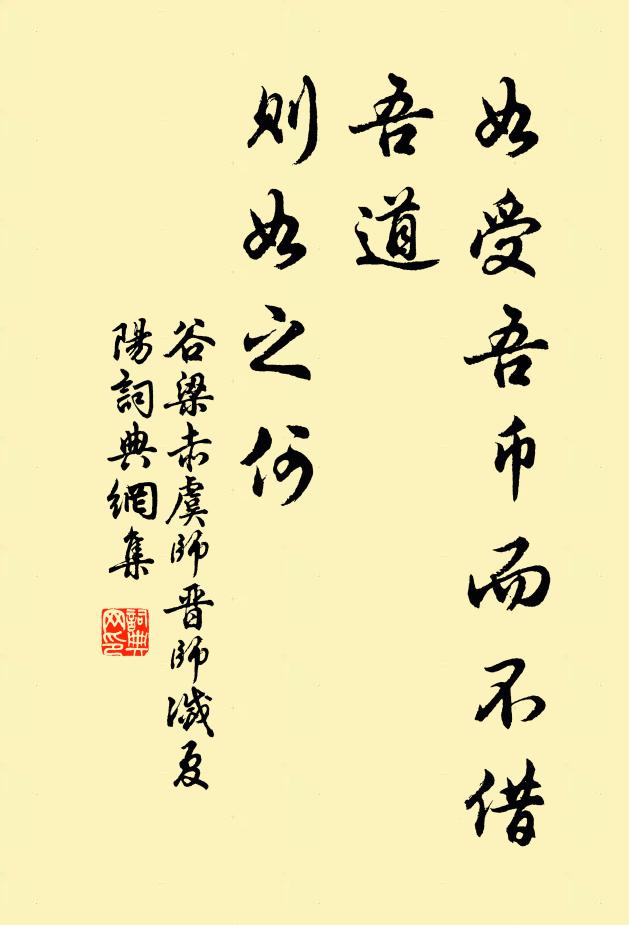 如受吾币而不借
吾道
則如之何
谷梁赤虞師晋師滅夏
陽詞典網集
詞典
网印